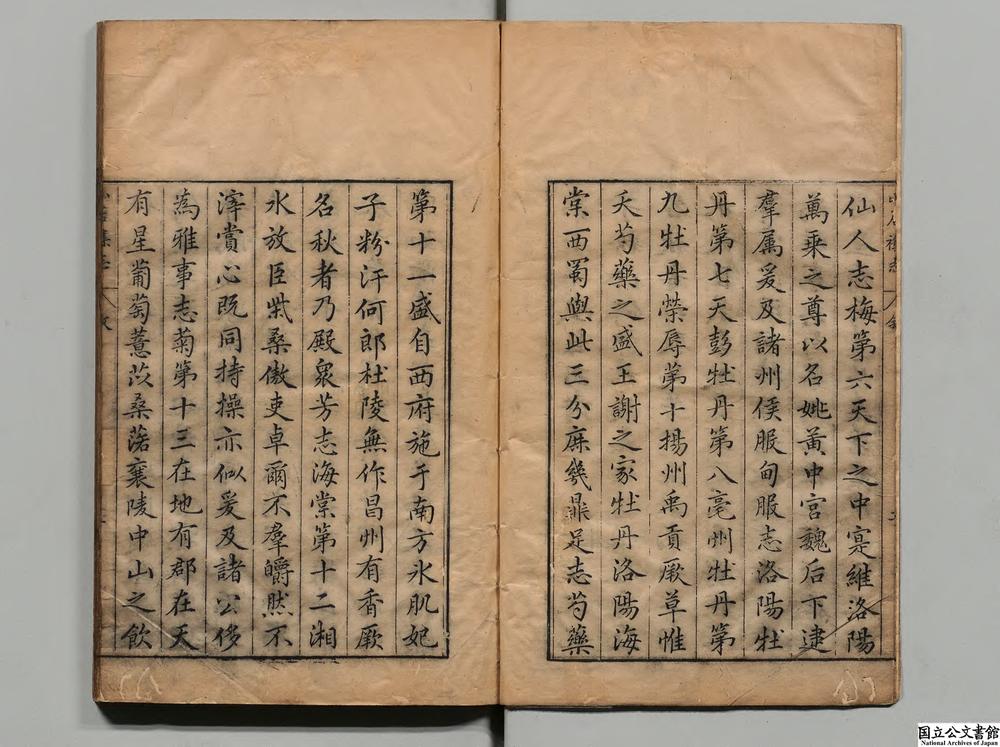 仙人志梅第六天下之中寔維洛陽
萬乗之尊以名姚黃中宮魏后下逮
羣属爰及諸州侯服甸服志洛陽牡
丹第七天彭牡丹第八亳州牡丹第
九牡丹榮辱第十揚州禹貢厥草惟
夭芍藥之盛王謝之家牡丹洛陽海
棠西蜀與此三分庶幾鼎足志芍藥
第十一盛自西府施于南方氷肌妃
子粉汗何郎杜陵無作昌州有香厥
名秋者乃殿衆芳志海棠第十二湘
水放臣柴桑傲吏卓爾不羣皭然不
滓賞心既同持操亦似爰及諸公侈
為雅事志菊第十三在地有郡在天
有星葡萄薏苡桑落襄陵中山之飲
国立公文書館
National Archives of Japan